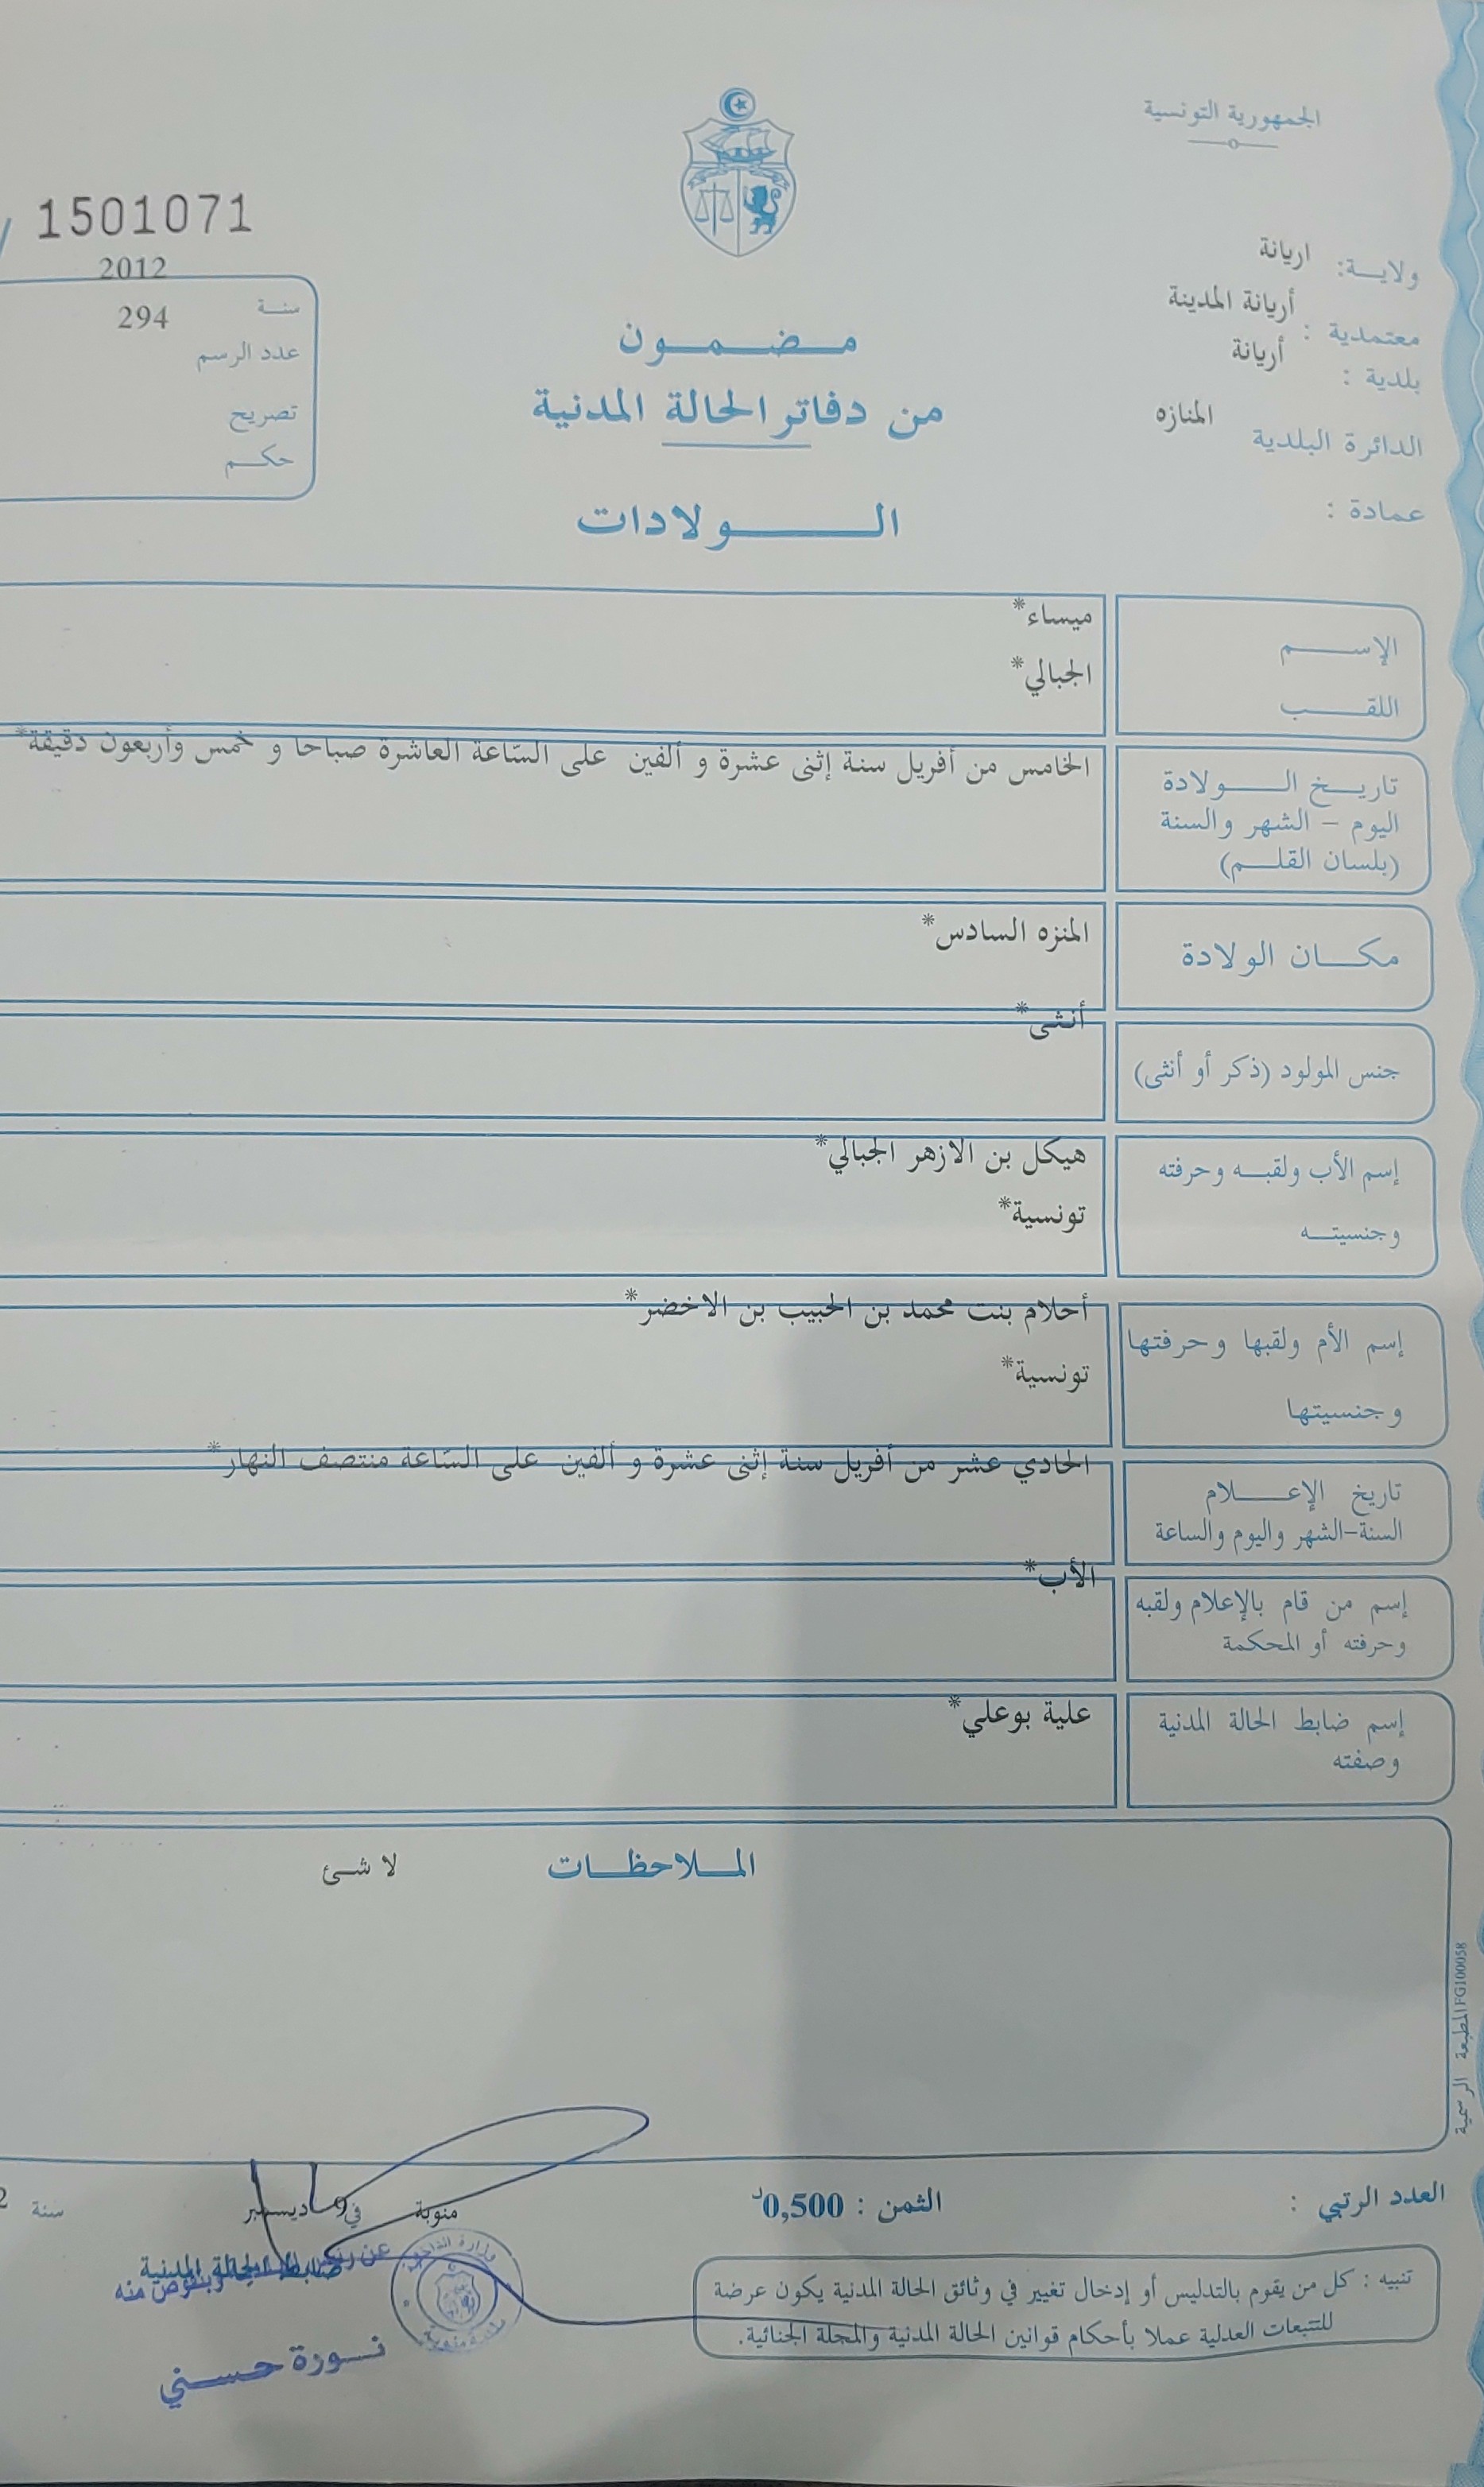 الجمهورية التونسية
1501071
ولايـــة: اريانة
معتمدية : أريانة المدينة
بلدية : أريانة
الدائرة البلدية المنازه
عمادة :
2012
سنــة
294
عدد الرسم
تصريح
حكــم
مــضــمــون
من دفاتر الحالة المدنية
الــولادات
الإســـم ميساء*
اللقـــب الجبالي*
تاريــخ الـــولادة
اليوم – الشهر والسنة
(بلسان القلـــم)
الخامس من أفريل سنة إثنى عشرة و ألفين على السّاعة العاشرة صباحا و خمس وأربعون دقيقة*
مكـــان الولادة المنزه السادس*
جنس المولود (ذكر أو أنثى) أنثى*
إسم الأب ولقبــه وحرفته هيكل بن الازهر الجبالي*
وجنسيتــه تونسية*
إسم الأم ولقبها وحرفتها أحلام بنت محمد بن الحبيب بن الاخضر*
وجنسيتها تونسية*
تاريخ الإعـــلام
السنة-الشهر واليوم والساعة
الحادي عشر من أفريل سنة إثنى عشرة و ألفين على السّاعة منتصف النهار*
إسم من قام بالإعلام ولقبه
وحرفته أو المحكمة
الأب*
إسم ضابط الحالة المدنية
وصفته
علية بوعلي*
المــلاحظــات لا شئ
المطبعة الرسمية FG100058
العدد الرتبي :
الثمن : 0,500د
منوبة في 9 ديسمبر سنة
ضابط الحالة المدنية
وبتفويض منه
نــورة حســني
وزارة الداخلية
بلدية منوبة
تنبيه : كل من يقوم بالتدليس أو إدخال تغيير في وثائق الحالة المدنية يكون عرضة
للتتبعات العدلية عملا بأحكام قوانين الحالة المدنية والمجلة الجنائية.